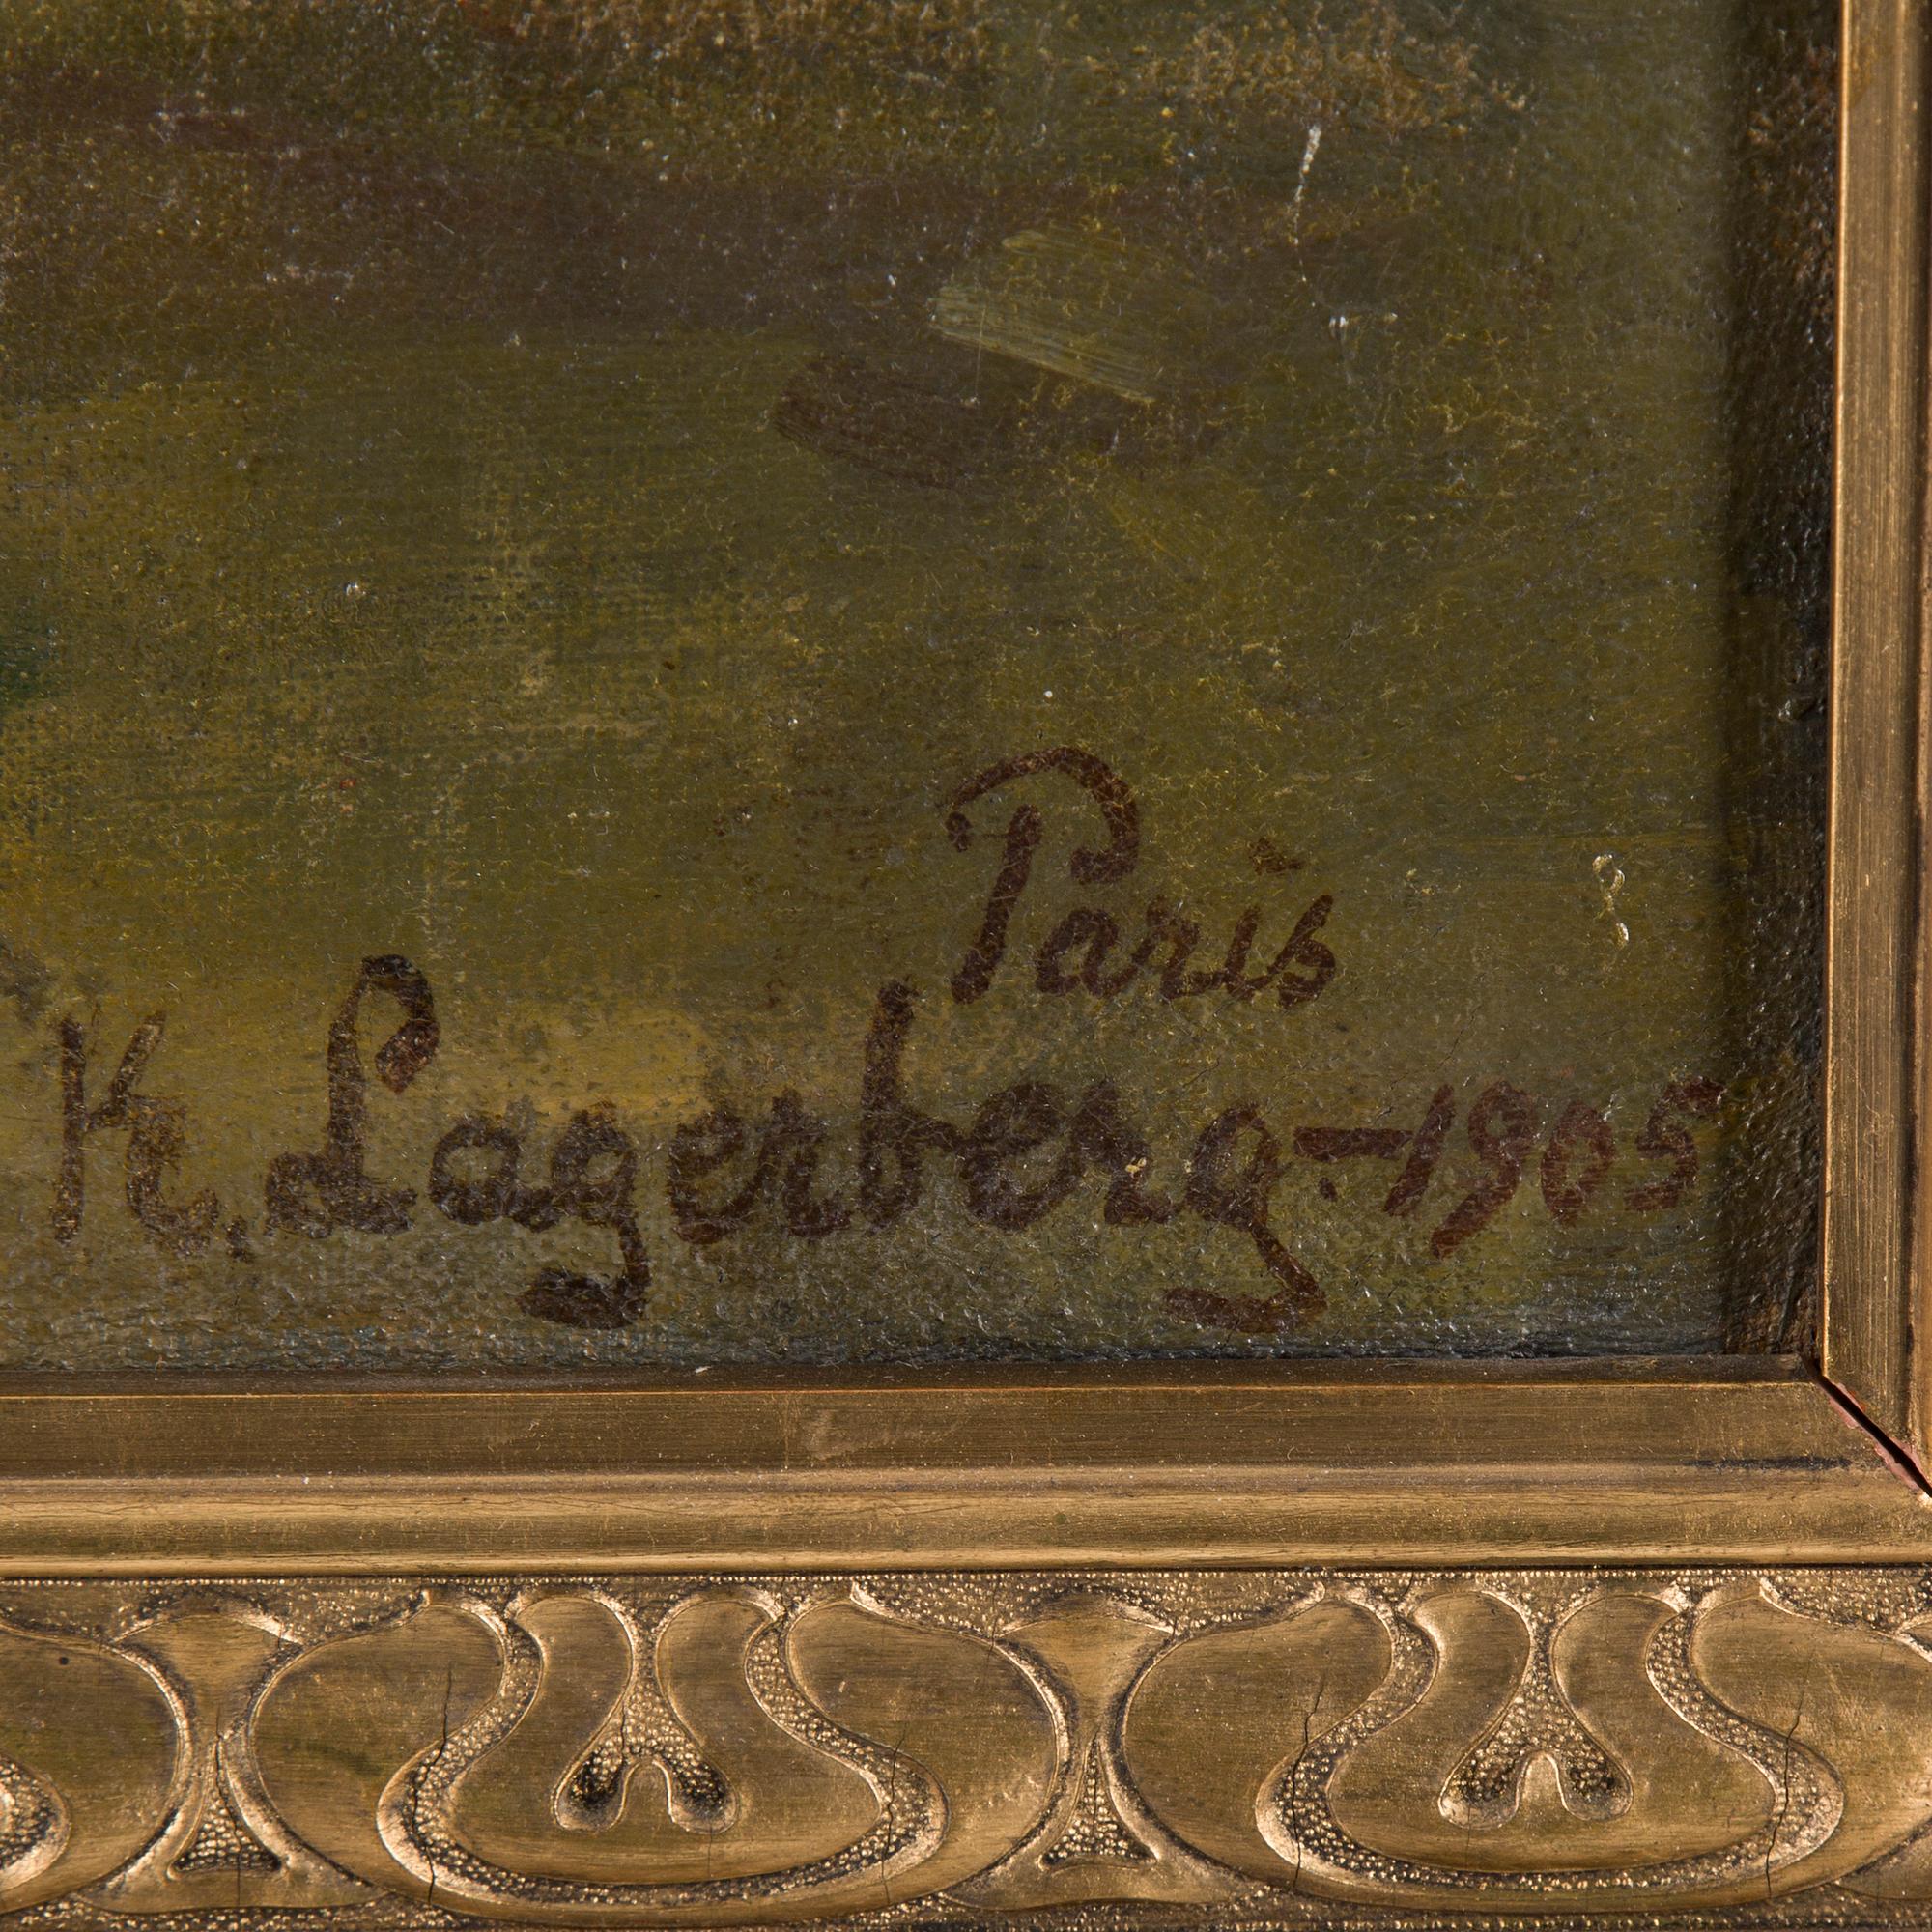 Paris
K. Lagerberg.-1905